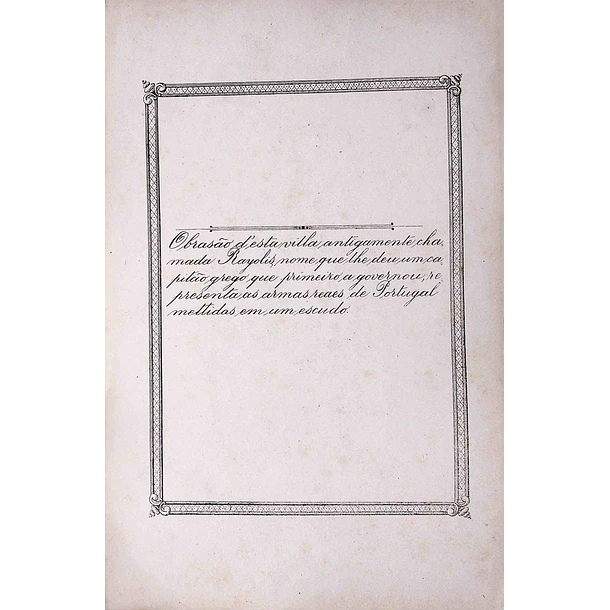 O brasão d'esta villa, antigamente cha-
mada Rayolis, nome que lhe deu um ca-
pitão grego que primeiro a governou, re
presenta as armas reaes de Portugal
mettidas em um escudo.